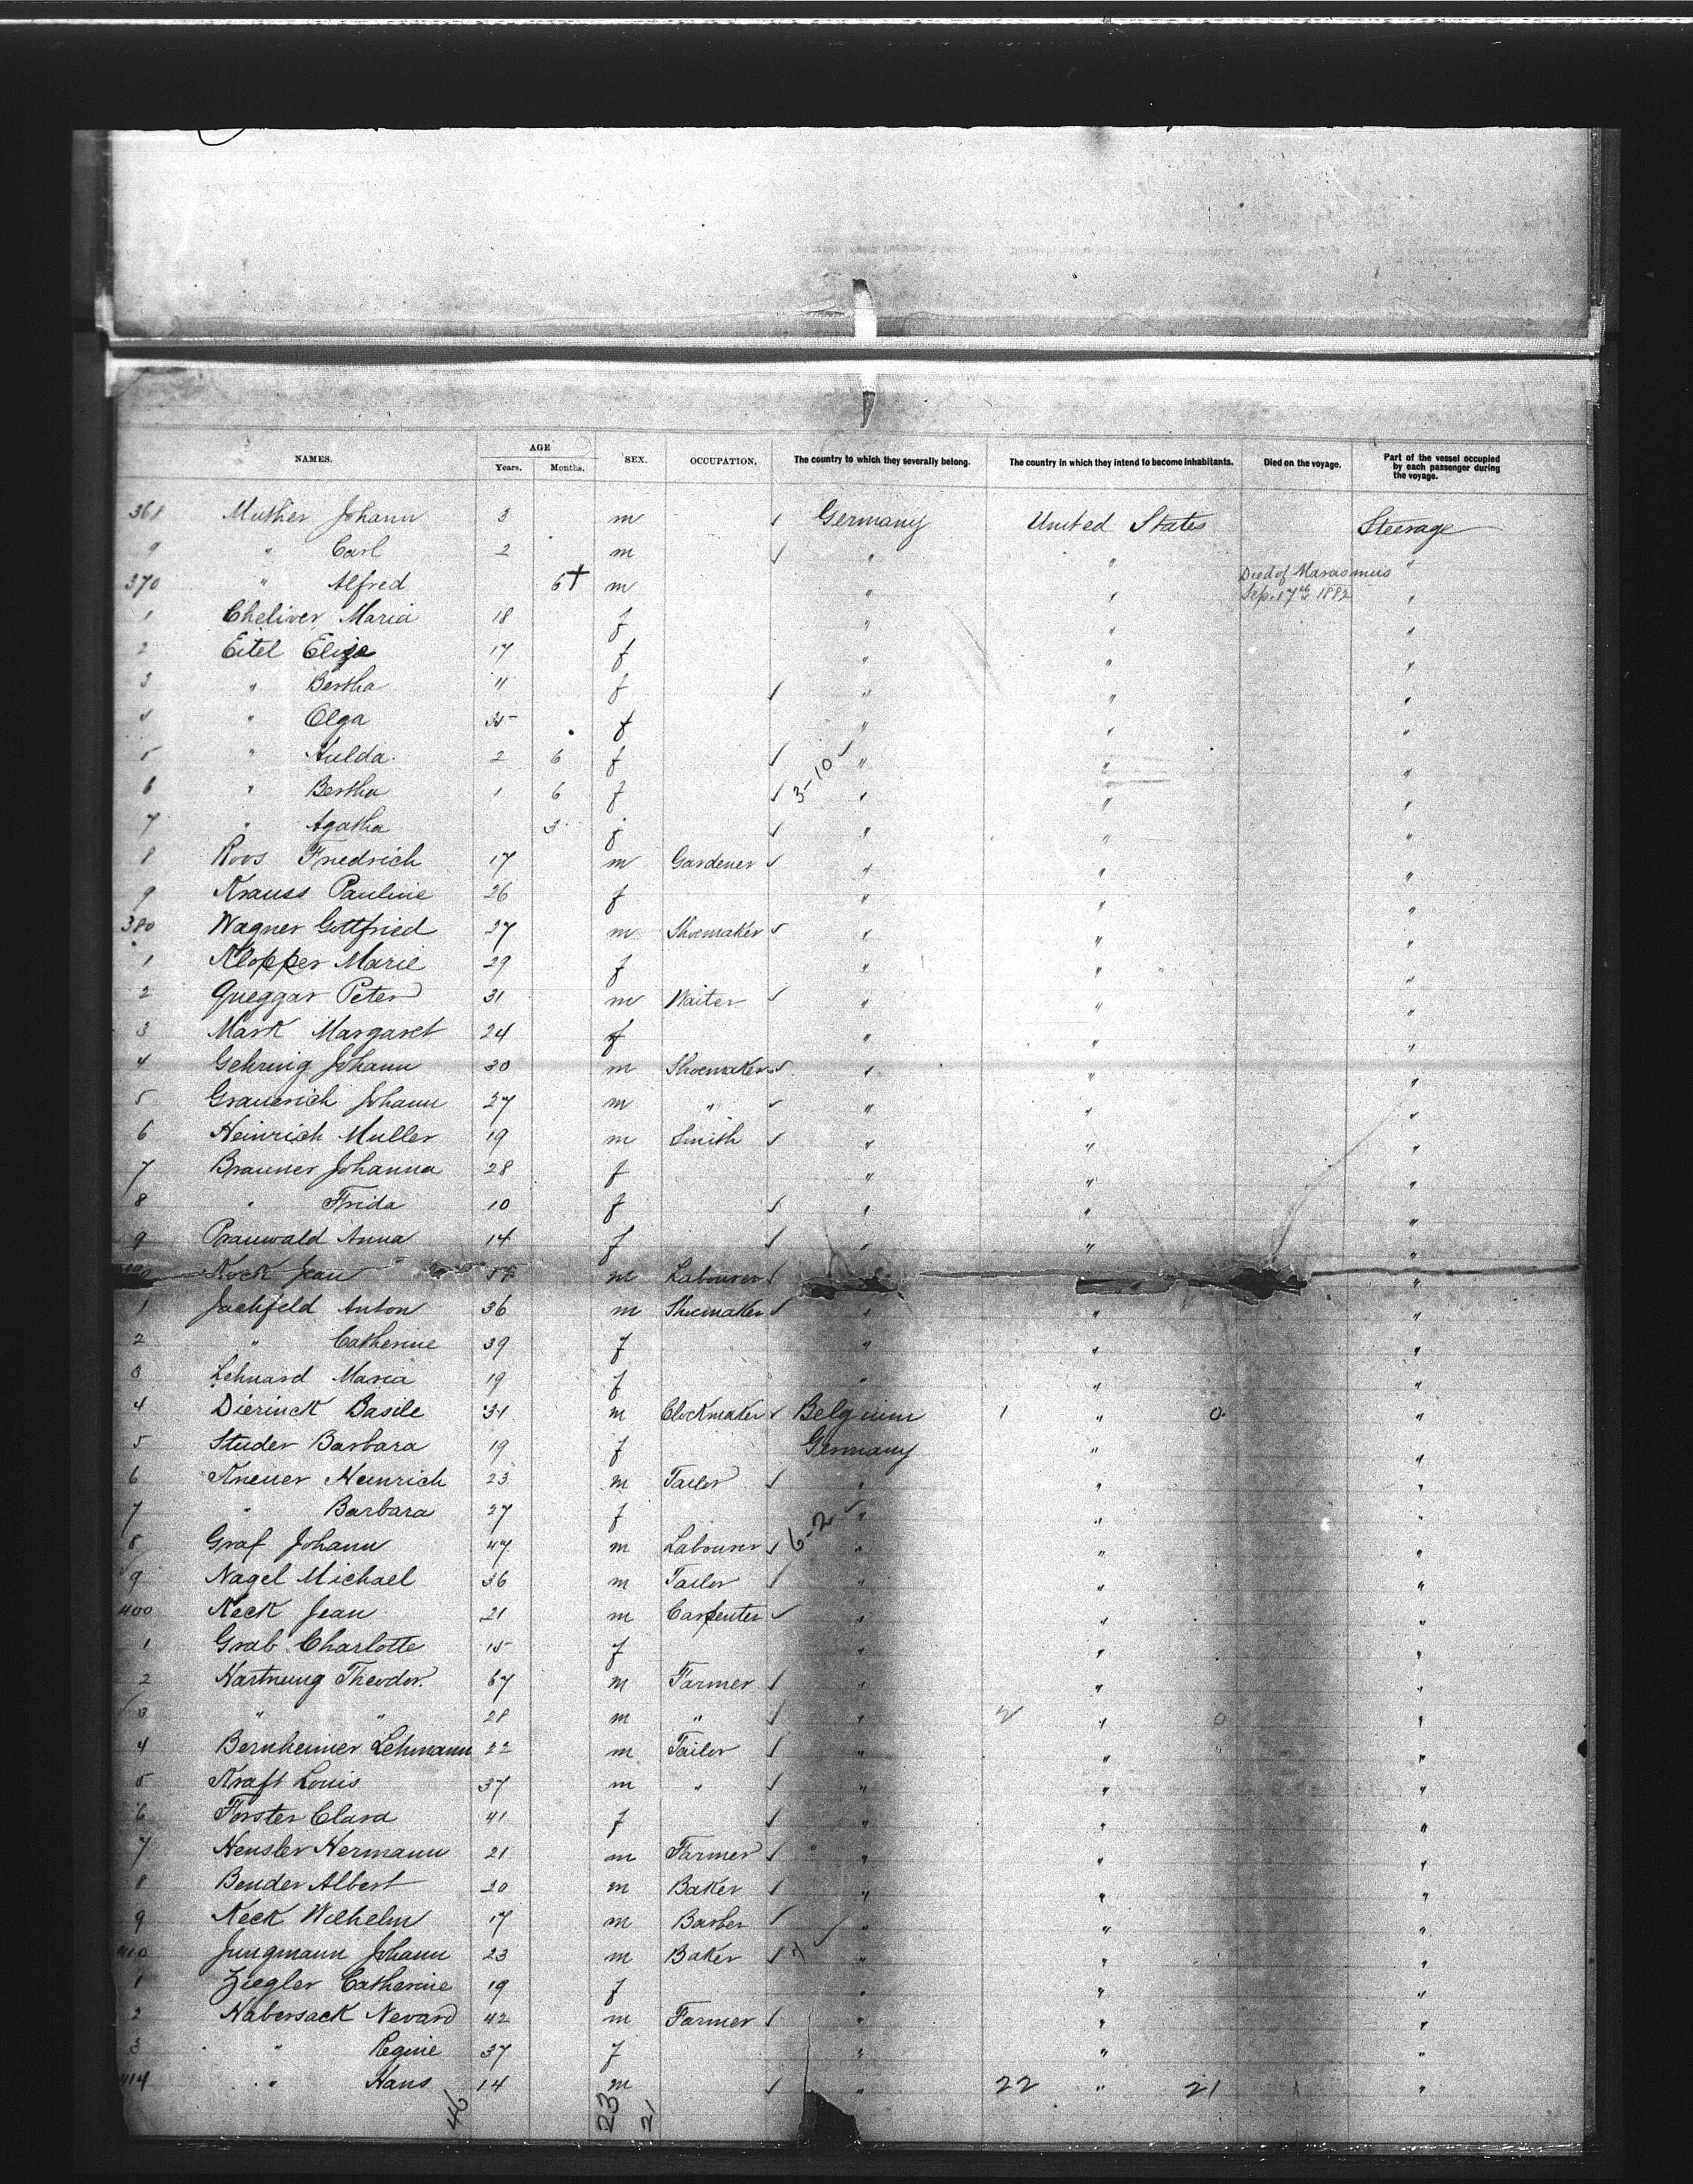 NAMES. AGE Years. Months. SEX. OCCUPATION. The country to which they severally belong. The country in which they intend to become inhabitants. Died on the voyage. Part of the vessel occupied by each passenger during the voyage.
368 Muther Johann 3 m ✓ Germany United States Steerage
9 " Carl 2 m ✓ " " "
370 " Alfred 6+ m " " Died of Marasmus Sep. 17th 1882 "
1 Cheliver Maria 18 f " " "
2 Eitel Elise 17 f " " "
3 " Bertha 11 f ✓ " " "
4 " Olga 35 f " " "
5 " Hulda 2 6 f ✓ " " "
6 " Bertha 1 6 f ✓ 3-10 ✓ " " "
7 " Agatha 3 f ✓ " " "
8 Roos Friedrich 17 m Gardener ✓ " " "
9 Krauss Pauline 26 f " " "
380 Wagner Gottfried 27 m Shoemaker ✓ " " "
1 Klopper Marie 29 f " " "
2 Queggar Peter 31 m Waiter ✓ " " "
3 Mark Margaret 24 f " " "
4 Gehring Johann 30 m Shoemaker ✓ " " "
5 Grauerich Johann 27 m " ✓ " " "
6 Heinrich Muller 19 m Smith ✓ " " "
7 Brauner Johanna 28 f " " "
8 " Frida 10 f ✓ " " "
9 Prauwald Anna 14 f ✓ " " "
Kock Jean m Labourer ✓ "
1 Jachfeld Anton 36 m Shoemaker ✓ " " "
2 " Catherine 39 f " " "
3 Lehnard Maria 19 f " " "
4 Dierinck Basile 31 m Clockmaker ✓ Belgium 1 " 0 "
5 Studer Barbara 19 f Germany " "
6 Kneuer Heinrich 23 m Tailor ✓ " " "
7 " Barbara 27 f " " "
8 Graf Johann 47 m Labourer ✓ 6-2 ✓ " " "
9 Nagel Michael 36 m Tailor ✓ " " "
400 Keck Jean 21 m Carpenter ✓ " " "
1 Grab Charlotte 15 f " " "
2 Hartnung Theodor. 67 m Farmer ✓ " " "
3 " " 28 m " ✓ " " 0 "
4 Bernheimer Lehmann 22 m Tailor ✓ " " "
5 Kraft Louis 37 m " ✓ " " "
6 Forster Clara 41 f ✓ " " "
7 Hensler Hermann 21 m Farmer ✓ " " "
8 Bender Albert 20 m Baker ✓ " " "
9 Keck Wilhelm 17 m Barber ✓ " " "
410 Jungmann Johann 23 m Baker ✓ ✓ " " "
1 Ziegler Catherine 19 f " " "
2 Habersack Nevard 42 m Farmer ✓ " " "
3 " Regine 37 f " " "
414 " Hans 14 m ✓ " 22 " 21 1 "
46 23 21